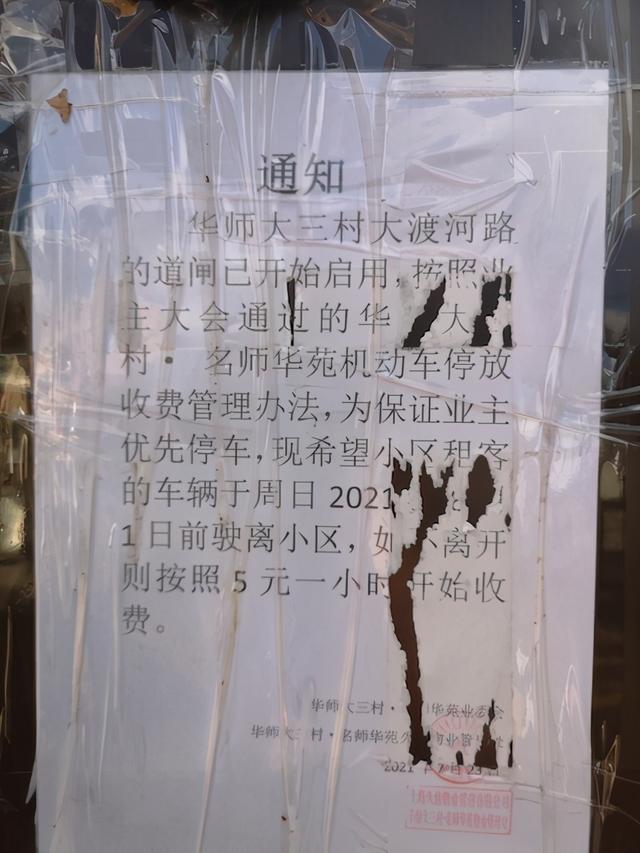 通知
华师大三村大渡河路
的道闸已开始启用，按照业
主大会通过的华 大
村· 名师华苑机动车停放
收费管理办法，为保证业主
优先停车，现希望小区租客
的车辆于周日 2021
1 日前驶离小区，如 离开
则按照 5 元一小时开始收
费。
华师大三村· 华苑业委会
华师大三村·名师华苑 业管
2021 年 7 月 23 日